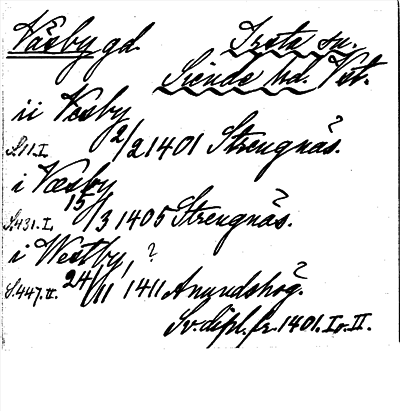 Väsby gd. Irsta sn.
Siende hd. Vst.
ii Vesby
S.11.I. 2/2 1401 Strengnäs.?
i Væsby
S.431.I. 15/3 1405 Strengnäs.?
i Westby, ?
S.447.II. 24/11 1411 Anundshög.?
Sv. dipl. fr. 1401. I o. II.